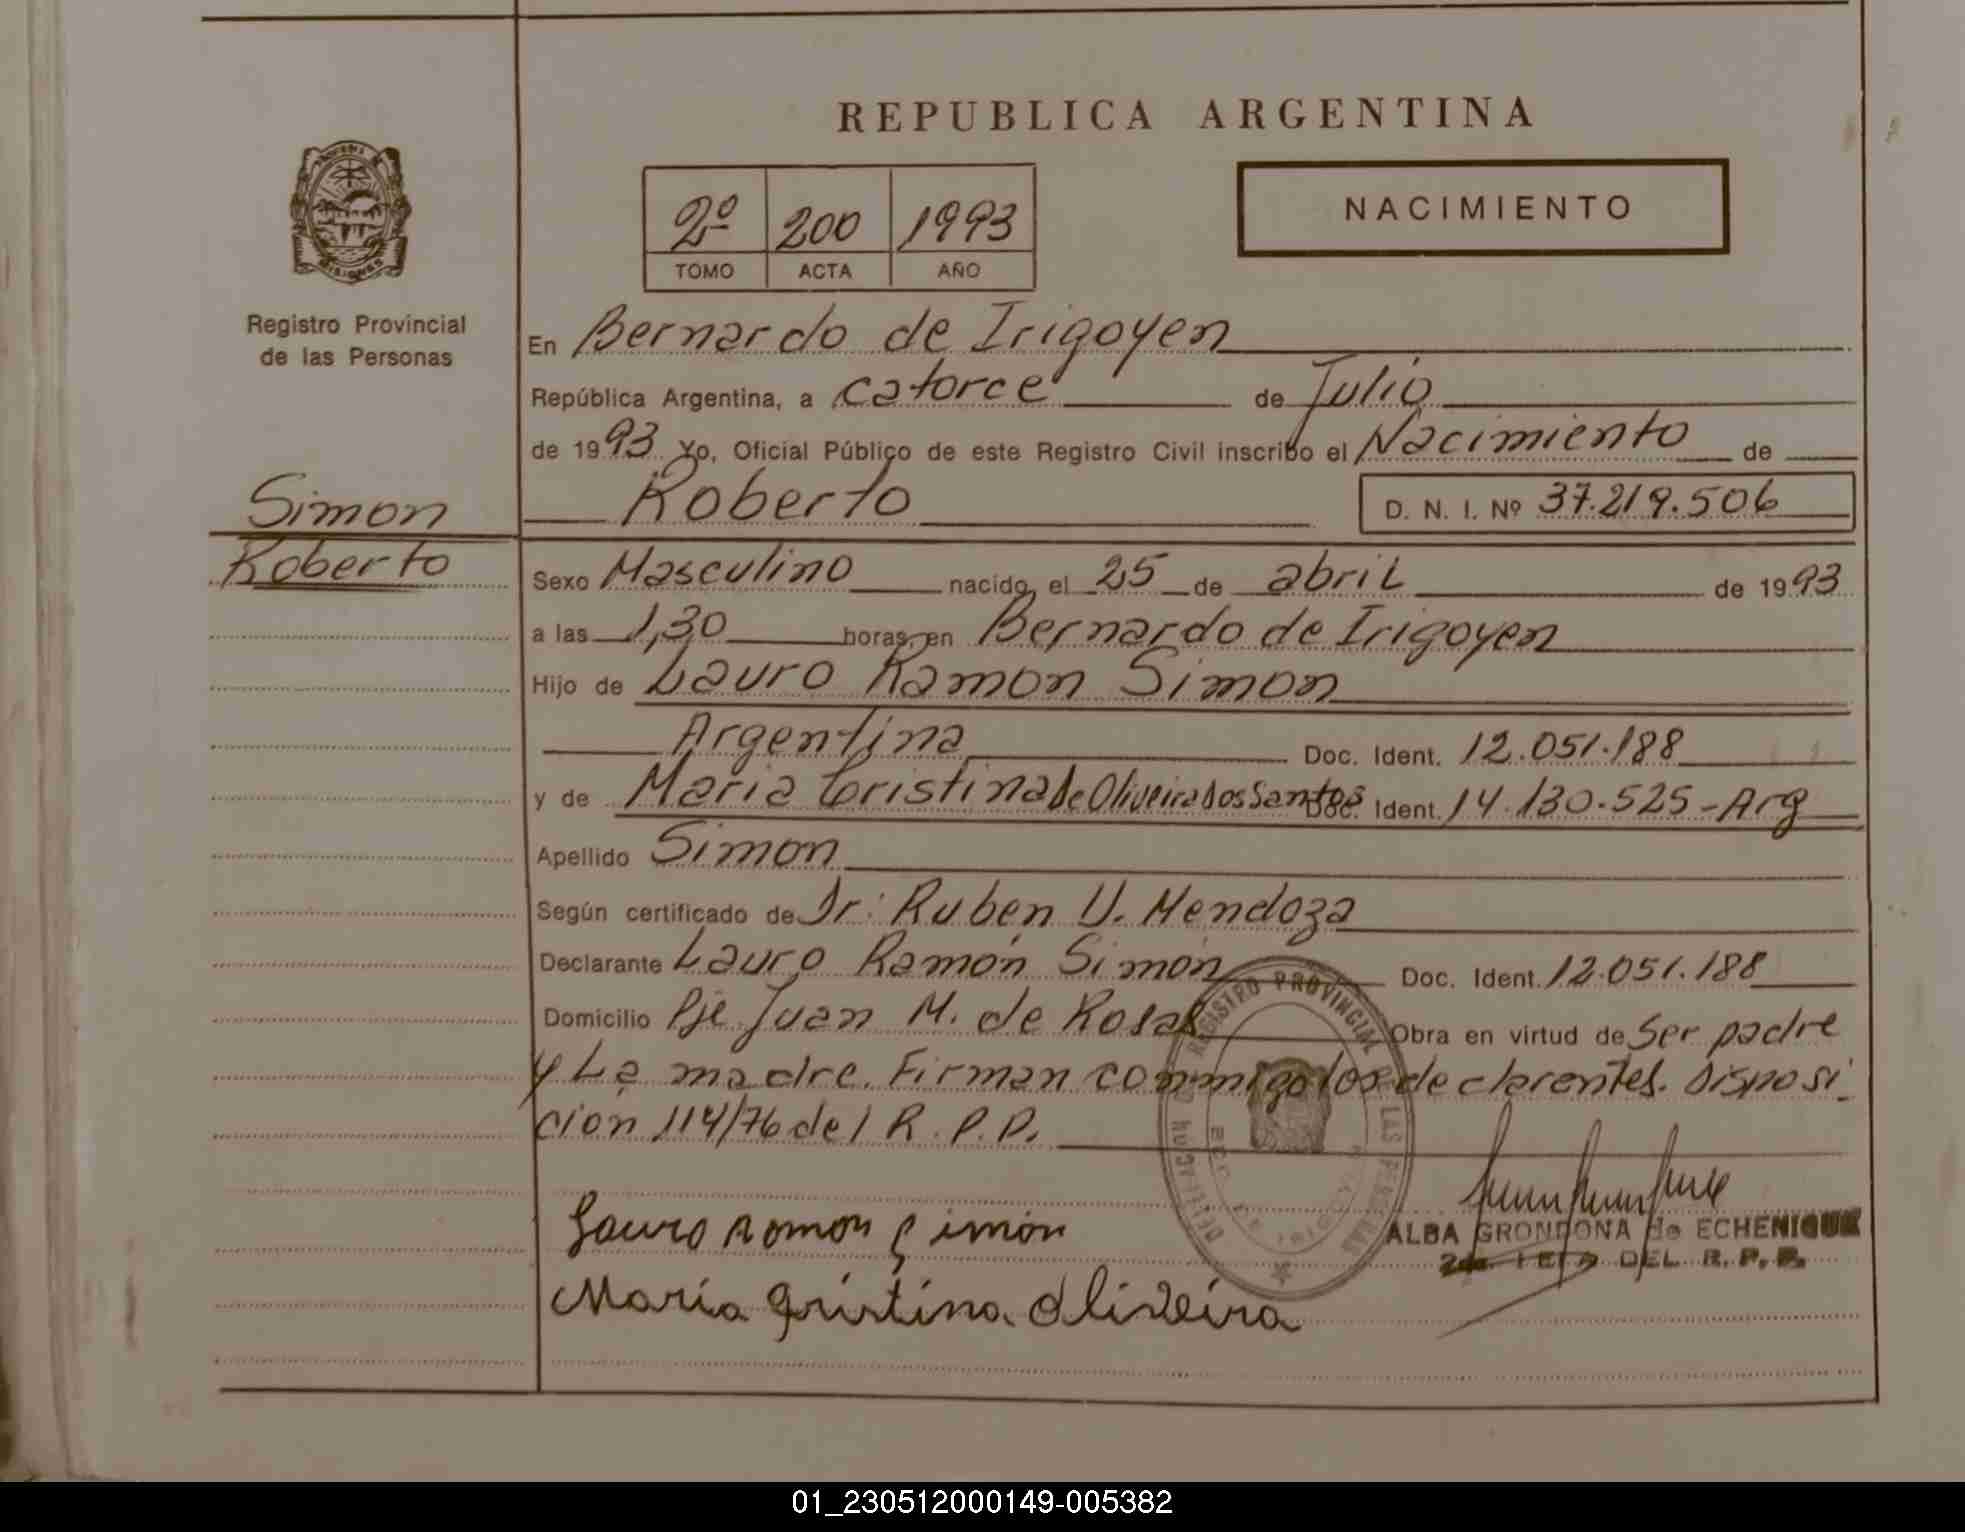 REPUBLICA ARGENTINA
PROVINCIA DE
MISIONES
2º 200 1993
TOMO ACTA AÑO
NACIMIENTO
Registro Provincial
de las Personas
En Bernardo de Irigoyen
República Argentina, a catorce de Julio
de 1993 Yo, Oficial Público de este Registro Civil inscribo el Nacimiento de
Simon
Roberto D. N. I. Nº 37.219.506
Roberto
Sexo Masculino nacido el 25 de abril de 1993
a las 1,30 horas, en Bernardo de Irigoyen
Hijo de Lauro Ramon Simon
Argentina Doc. Ident. 12.051.188
y de Maria Cristina de Oliveira dos Santos Doc. Ident. 14.130.525-Arg
Apellido Simon
Según certificado de Dr: Ruben U. Mendoza
Declarante Lauro Ramón Simón Doc. Ident. 12.051.188
Domicilio Pje Juan M. de Rosas Obra en virtud de Ser padre
y La madre. Firman conmigo los declarentes. Disposi
ción 114/76 del R.P.P.
REGISTRO PROVINCIAL DE LAS PERSONAS
Lauro Ramon Simón
ALBA GRONDONA de ECHENIQUE
2da. JEFA DEL R. P. P.
Maria Cristina Oliveira
01_230512000149-005382